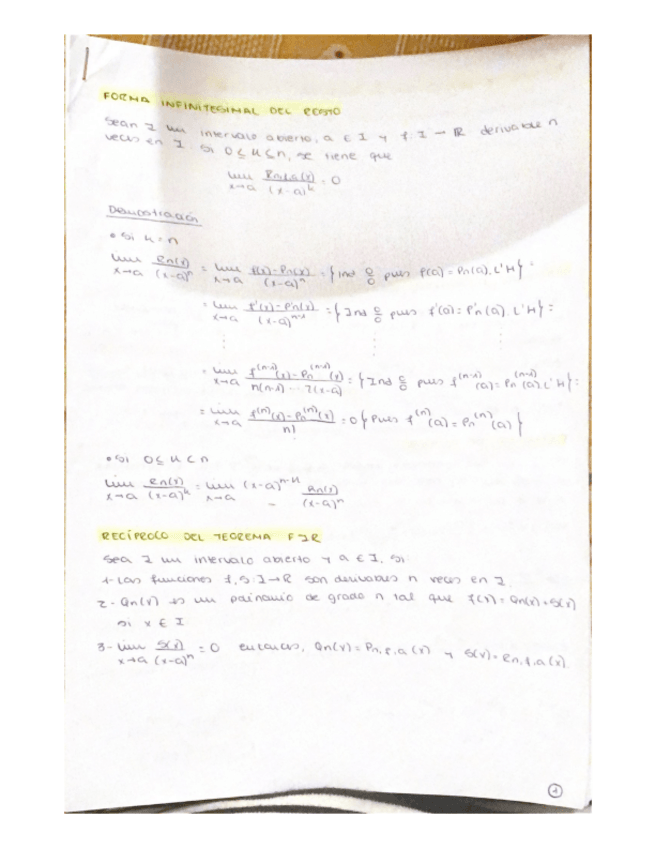 FORMA INFINITESIMAL DEL RESTO
Sean I un intervalo abierto, a ∈ I y f: I → R derivable n
veces en I. Si 0 ≤ k ≤ n, se tiene que
lim x→a Rn,f,a(x)/(x-a)^k = 0
Demostración
• Si k = n
lim x→a Rn(x)/(x-a)^n = lim x→a f(x)-Pn(x)/(x-a)^n = { Ind 0/0 pues f(a) = Pn(a). L'H } =
= lim x→a f'(x)-P'n(x)/(x-a)^n-1 = { Ind 0/0 pues f'(a) = P'n(a). L'H } =
⋮ ⋮ ⋮
= lim x→a f^(n-1)(x)-Pn^(n-1)(x)/n(n-1)...2(x-a) = { Ind 0/0 pues f^(n-1)(a) = Pn^(n-1)(a). L'H } =
= lim x→a f^(n)(x)-Pn^(n)(x)/n! = 0 { Pues f^(n)(a) = Pn^(n)(a) }
• Si 0 ≤ k < n
lim x→a Rn(x)/(x-a)^k = lim x→a (x-a)^n-k Rn(x)/(x-a)^n
RECÍPROCO DEL TEOREMA FIR
Sea I un intervalo abierto y a ∈ I, si:
1- Las funciones f, S: I → R son derivables n veces en I.
2- Qn(x) es un polinomio de grado n tal que f(x) = Qn(x) + S(x)
si x ∈ I
3- lim x→a S(x)/(x-a)^n = 0 entonces, Qn(x) = Pn,f,a(x) y S(x) = Rn,f,a(x).
1